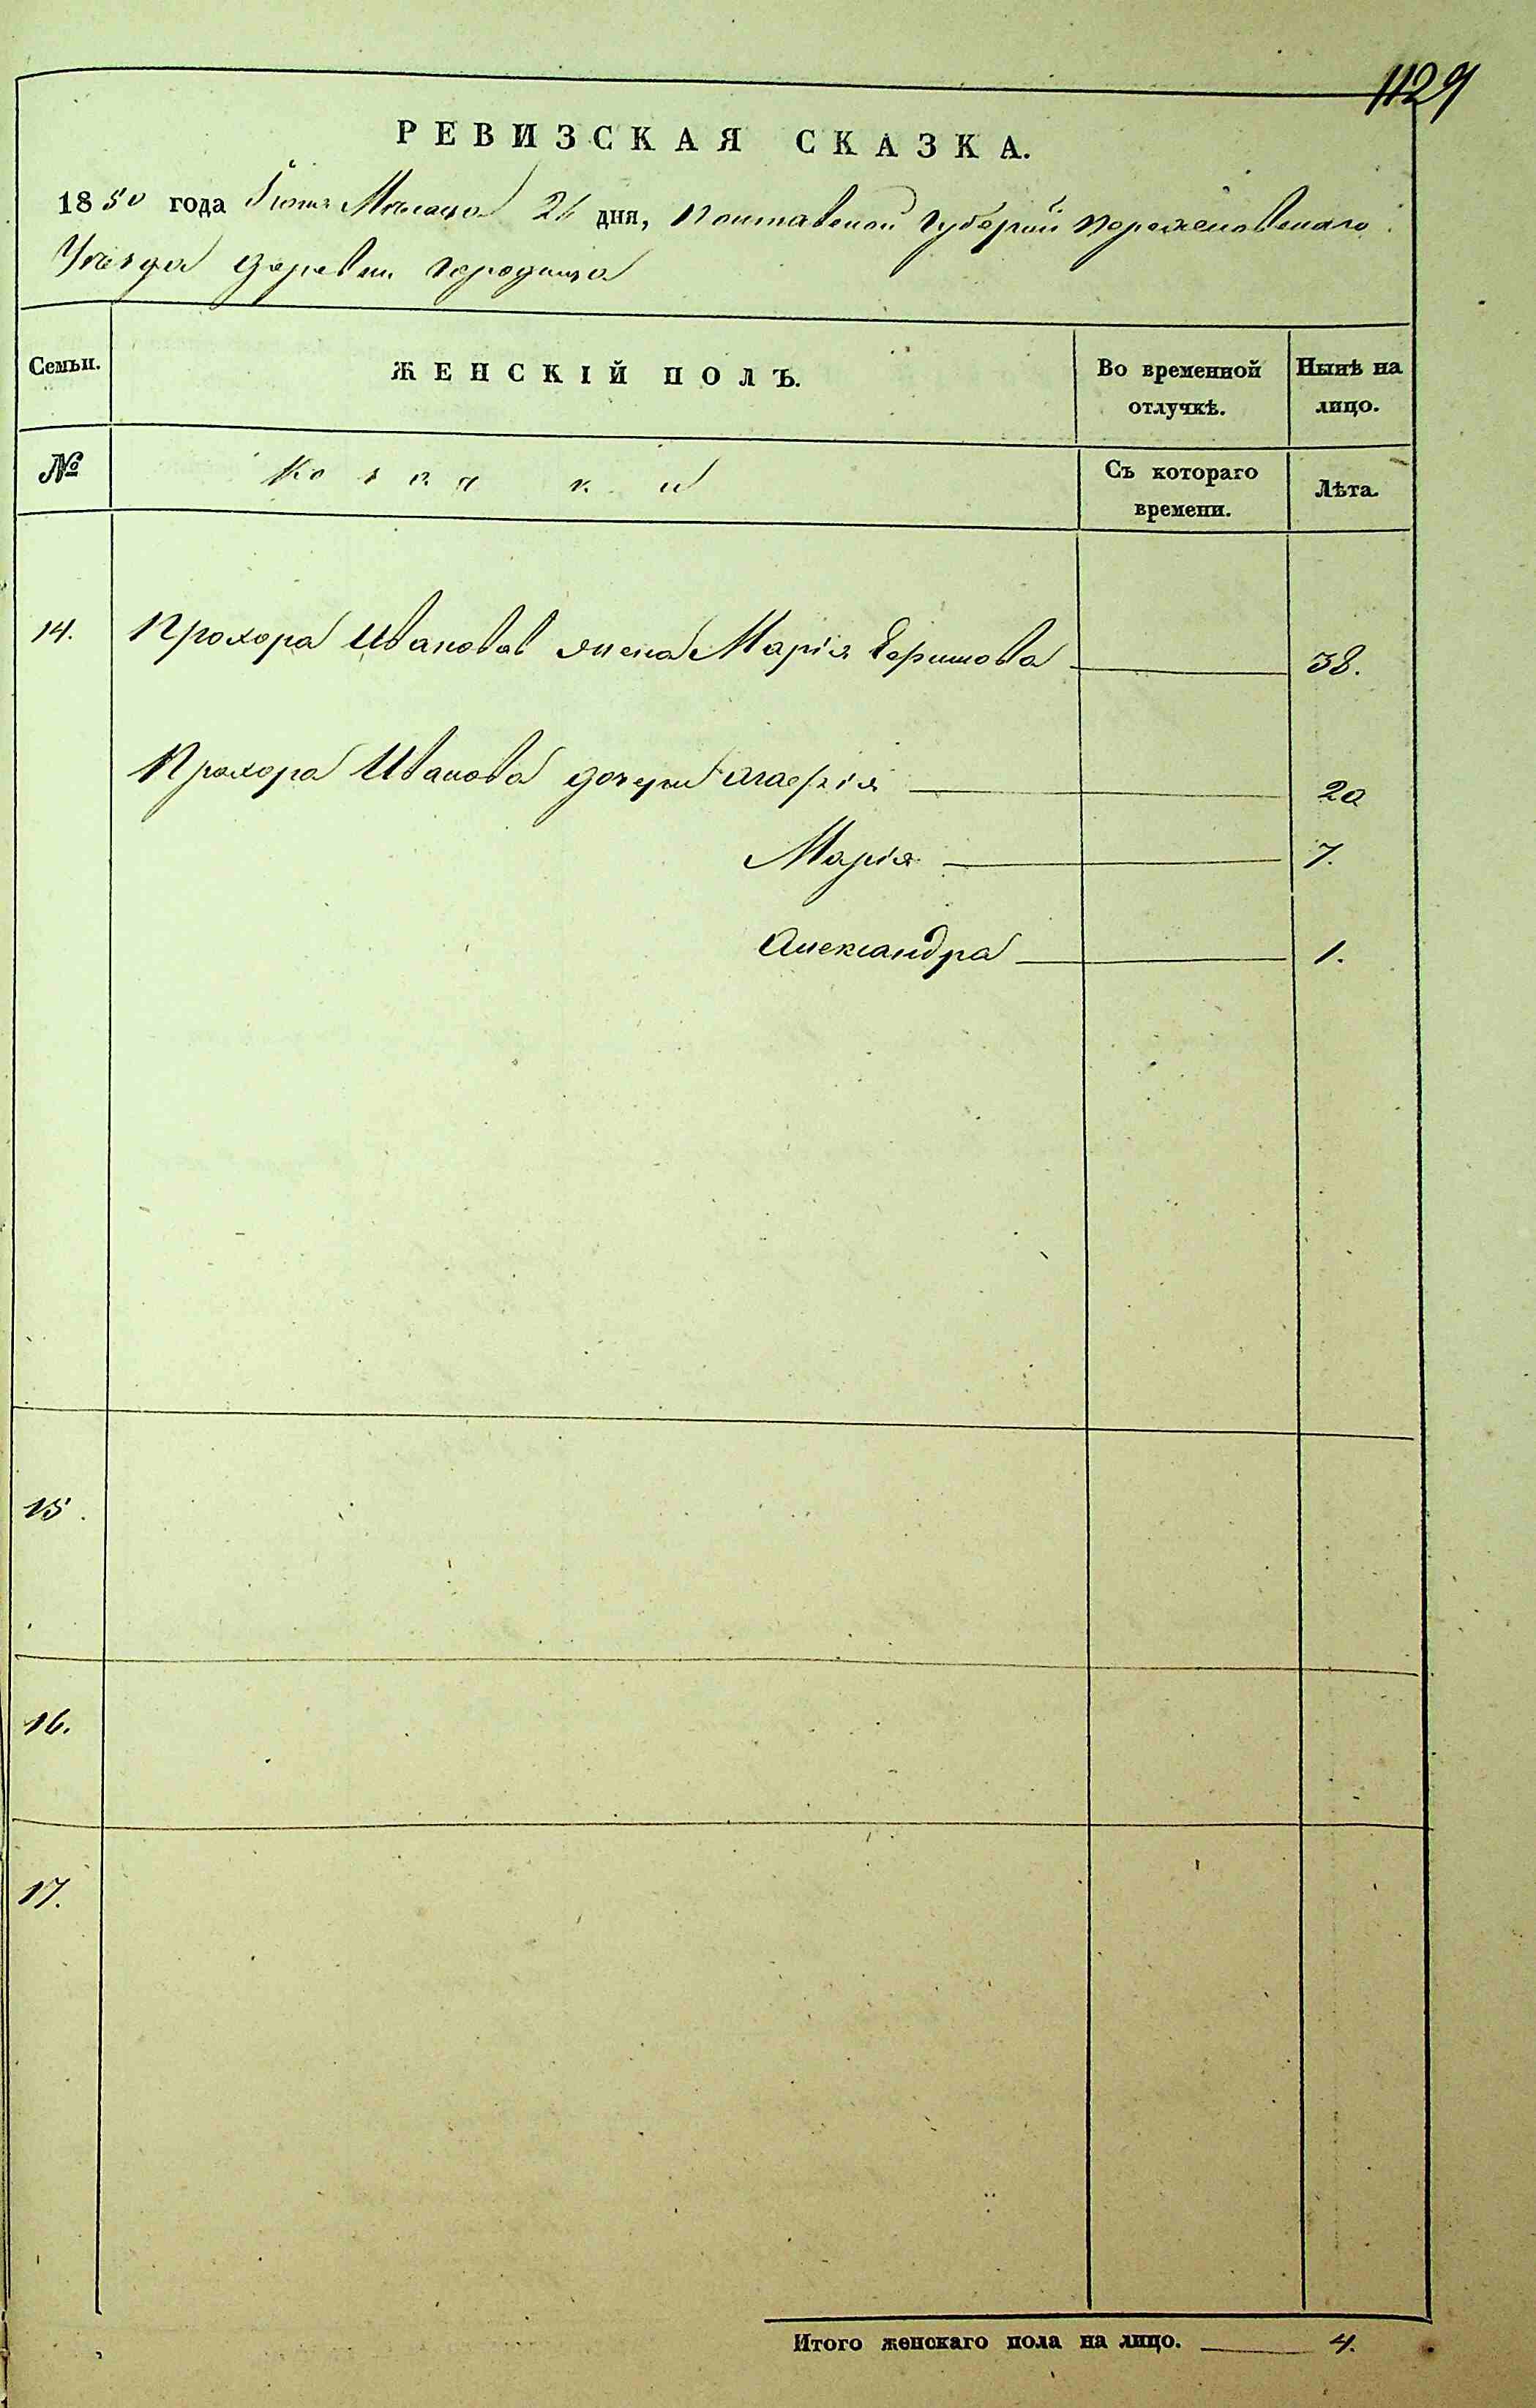 1129
РЕВИЗСКАЯ СКАЗКА.
1850 года Іюня Месяца 21 дня, Полтавской Губерніи Переяславскаго
Уезда деревни Городища
Семьи.
ЖЕНСКІЙ ПОЛЪ.
Во временной
отлучкѣ.
Нынѣ на
лицо.
№
Козачки
Съ котораго
времени.
Лѣта.
14. Прохора Иванова жена Марія 38.
Прохора Иванова дочери Агафія 20
Марія 7.
Александра 1.
15.
16.
17.
Итого женскаго пола на лицо. 4.